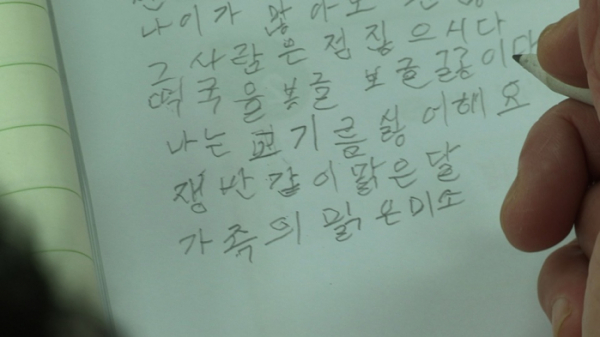 나이가 많아보
그 사람은 점잖으시다
떡국을 보글 보글끓이다
나는 고기름싫어해요
쟁반같이맑은달
가족의 맑은미소